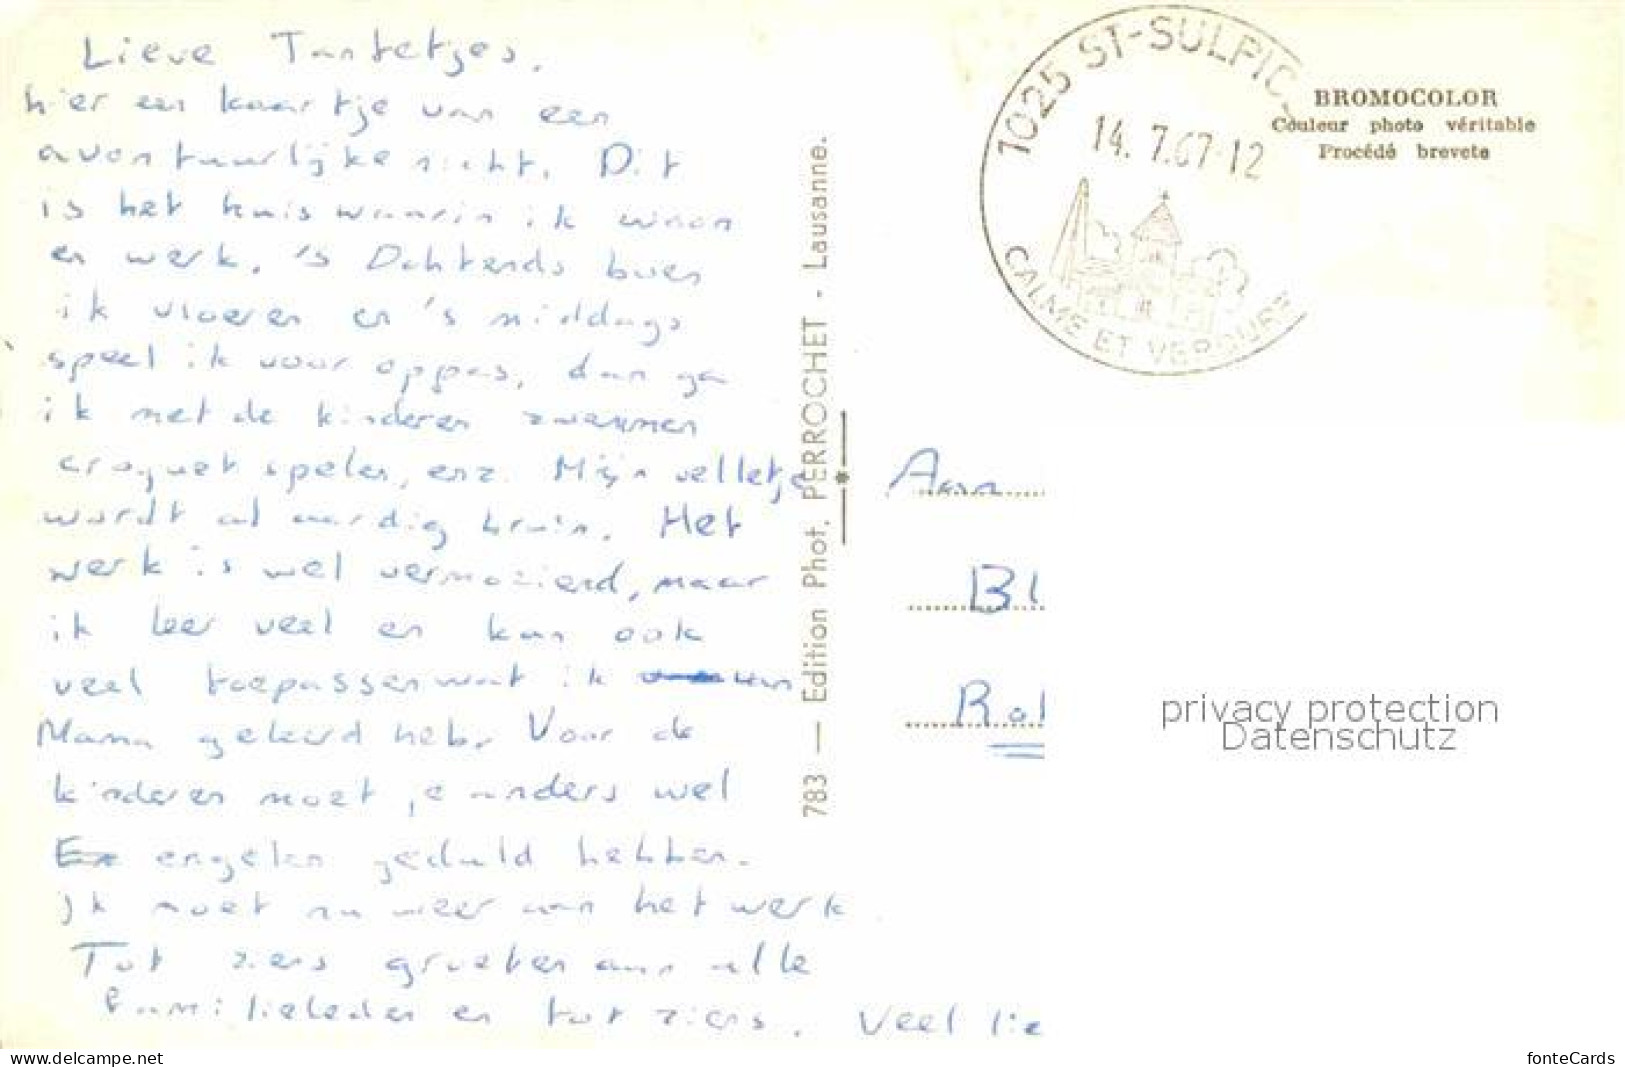 Lieve Tantetjes.
hier een kaartje van een
avontuurlijke nicht. Dit
is het huis waarin ik woon
en werk. 's Ochtends boen
ik vloeren en 's middags
speel ik voor oppas, dan ga
ik met de kinderen zwemmen
croquet spelen, enz. Mijn velletje
wordt al aardig bruin. Het
werk is wel vermoeiend, maar
ik leer veel en kan ook
veel toepassen wat ik van
Mama geleerd heb. Voor de
kinderen moet je anders wel
En engelen geduld hebben.
Ik moet nu weer aan het werk
Tot ziens groeten aan alle
familieleden en tot ziens. Veel lie
783 — Edition Phot. PERROCHET - Lausanne.
1025 ST-SULPIC
14. 7.67-12
CALME ET VERDURE
BROMOCOLOR
Couleur photo véritable
Procédé breveté
Aan
Bl
Rot
privacy protection
Datenschutz
www.delcampe.net
fonteCards